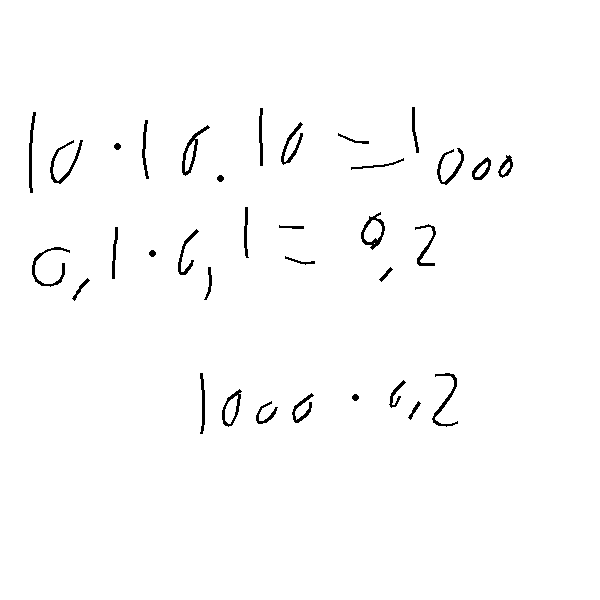 10 · 10 . 10 = 1000
0,1 · 0,1 = 0,2
1000 · 0,2